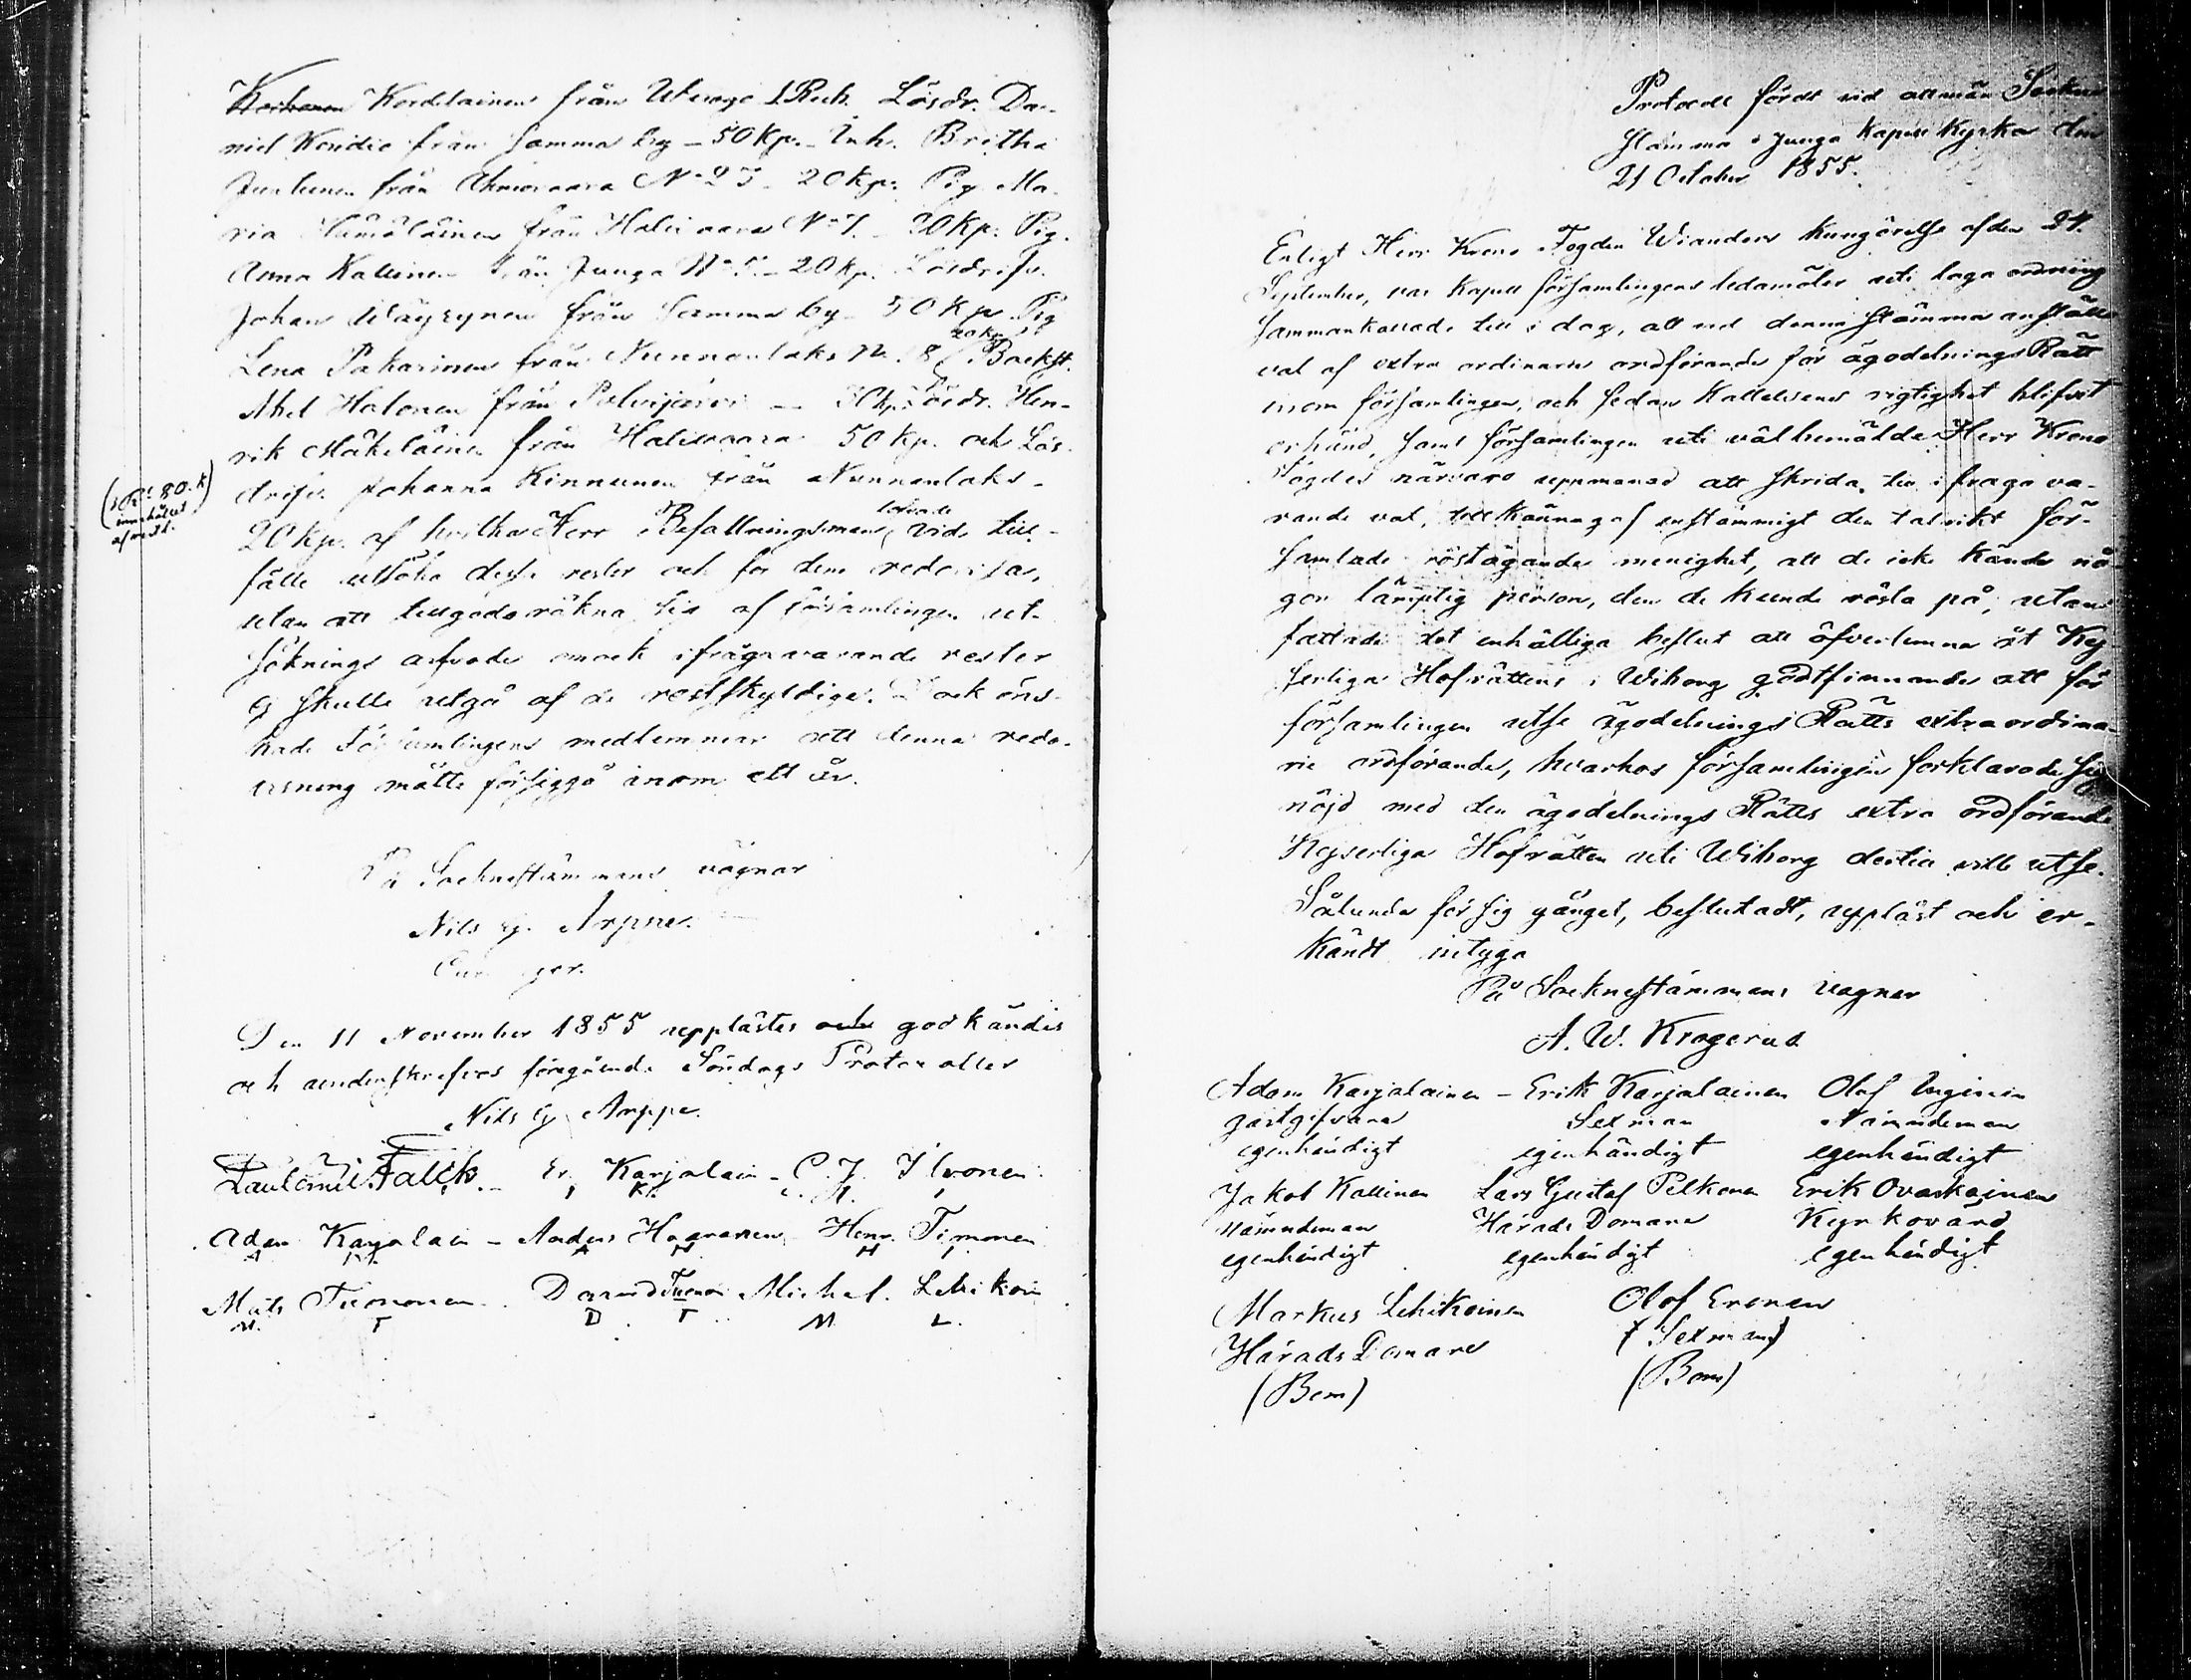 Kordelainen från 1 Rub. Lösdr. Da-
niel Kondie från samma by - 50 Kp. - Inh. Britha
från Ahmovaara No 25 - 20 Kp. Pig. Ma-
ria Hämäläinen från Halivaara No 1. - 20 Kp. Pig.
Anna Kallinen från Juuga No 5. - 20 Kp. Lösdrifv.
Johan Wäyrynen från samma by - 50 Kp. Pig
Lena Pakarinen från Nunnanlaks No. 8 20 Kp. Backst.
Abel Halonen från Polvijärvi — 30 kp. Lösdr. Hen-
rik Mäkeläinen från Halivaara 50 Kp. och Lös-
drifv. Johanna Kinnunen från Nunnanlaks -
20 Kp. af hvilka Herr Befallningsman lofvade vid till-
fälle utsöka dessa rester och för dem redovisa,
utan att tillgodoräkna sig af församlingen ut-
söknings arfvode om ock ifrågavarande rester
ej skulle utgå af de restskyldige. Dock öns-
kade Församlingens medlemmar att denna redo-
visning måtte försiggå inom ett år.
(80. k
innehållet
På Sockneståmmans vägnar
Nils G. Arppe.
Den 11 November 1855 upplästes och godkändes
och underskrefvos föregående Söndags Protocoller
Nils G. Arppe.
Falck. Er. Karjalain - C. J. Ilvonen
K. C. J. I
Adam Karjalain - Anders Haaranen Henr. Timonen
A K. A H H T
Mats Tuononen. David Tuonon Michel. Lehikoin
M. T D. T. M L.
Protocoll fördt vid allmän Sockne
stämma i Juuga Kapell Kyrka den
21 October 1855.
Enligt Herr Krono Fogden Wianders kungörelse af den 24.
September, var Kapell församlingens ledamöter uti laga ordning
sammankallade till i dag, att vid denna stämma anställa
val af extra ordinarie ordförande för ägodelnings Rätt
inom församlingen, och sedan Kallelsens rigtighet blifvit
erkänd, samt församlingen uti välbemälde Herr Krono
Fogdes närvaro uppmanad att skrida till ifråga va-
rande val, tillkännagaf enstämmigt den talrikt för-
samlade röstägande menighet, att de icke kände nå-
gon lämplig person, den de kunde rösta på, utan
fattade det enhälliga beslut att öfverlemna åt Kej-
serliga Hofrättens i Wiborg godtfinnande att för
församlingen utse ägodelnings Rätts extraordina-
rie ordförande, hvarhos församlingen förklarade sig
nöjd med den ägodelnings Rätts extra ordförande
Kejserliga Hofrätten uti Wiborg dertill ville utse.
Sålunda försig gånget, beslutadt, uppläst och er-
kändt intyga
På Sockneståmmans vägnar
A. W. Krogerus
Adam Karjalainen - Erik Karjalainen Olof
gästgifvare Sexman Nämndeman
egenhändigt egenhändigt egenhändigt
Jakob Kallinen Lars Gustaf Pelkonen Erik Ovaskainen
Nämndeman Härads Domare Kyrkovärd
egenhändigt egenhändigt egenhändigt
Markus Lehikoinen Olof Eronen
Härads Domare (Sexman)
(Bom) (Bom)